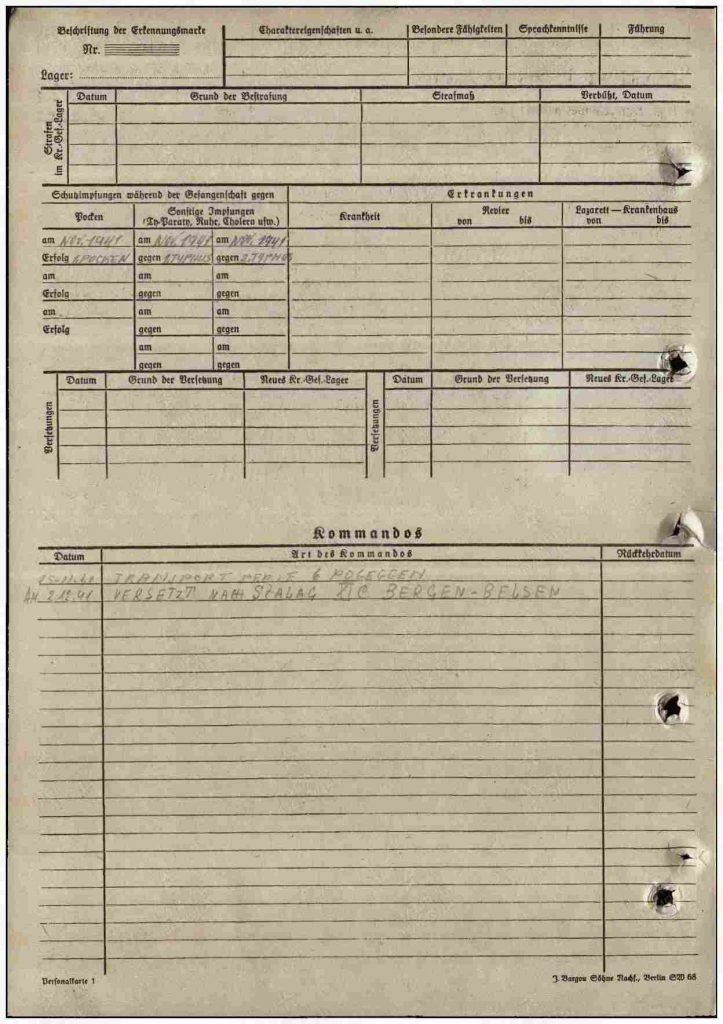 Beschriftung der Erkennungsmarke
Nr.
Lager:
Charaktereigenschaften u. a.
Besondere Fähigkeiten
Sprachkenntnisse
Führung
Strafen im Kr.-Gef.-Lager
Datum
Grund der Bestrafung
Strafmaß
Verbüßt, Datum
Schutzimpfungen während der Gefangenschaft gegen
Erkrankungen
Pocken
Sonstige Impfungen
(Ty-Paraty, Ruhr, Cholera usw.)
Krankheit
Revier
von bis
Lazarett — Krankenhaus
von bis
am NOV. 1941 am NOV. 1941 am NOV. 1941
Erfolg POCKEN gegen 1 TYPHUS gegen 2 TYPHUS
am am am
Erfolg gegen gegen
am am am
Erfolg gegen gegen
am am
gegen gegen
Versetzungen
Datum Grund der Versetzung Neues Kr.-Gef.-Lager
Versetzungen
Datum Grund der Versetzung Neues Kr.-Gef.-Lager
Kommandos
Datum Art des Kommandos Rückkehrdatum
TRANSPORT 6 POGEGGEN
AM 2.12.41 VERSETZT NACH STALAG XI C BERGEN-BELSEN
Personalkarte 1
J. Bargou Söhne Nachf., Berlin SW 68